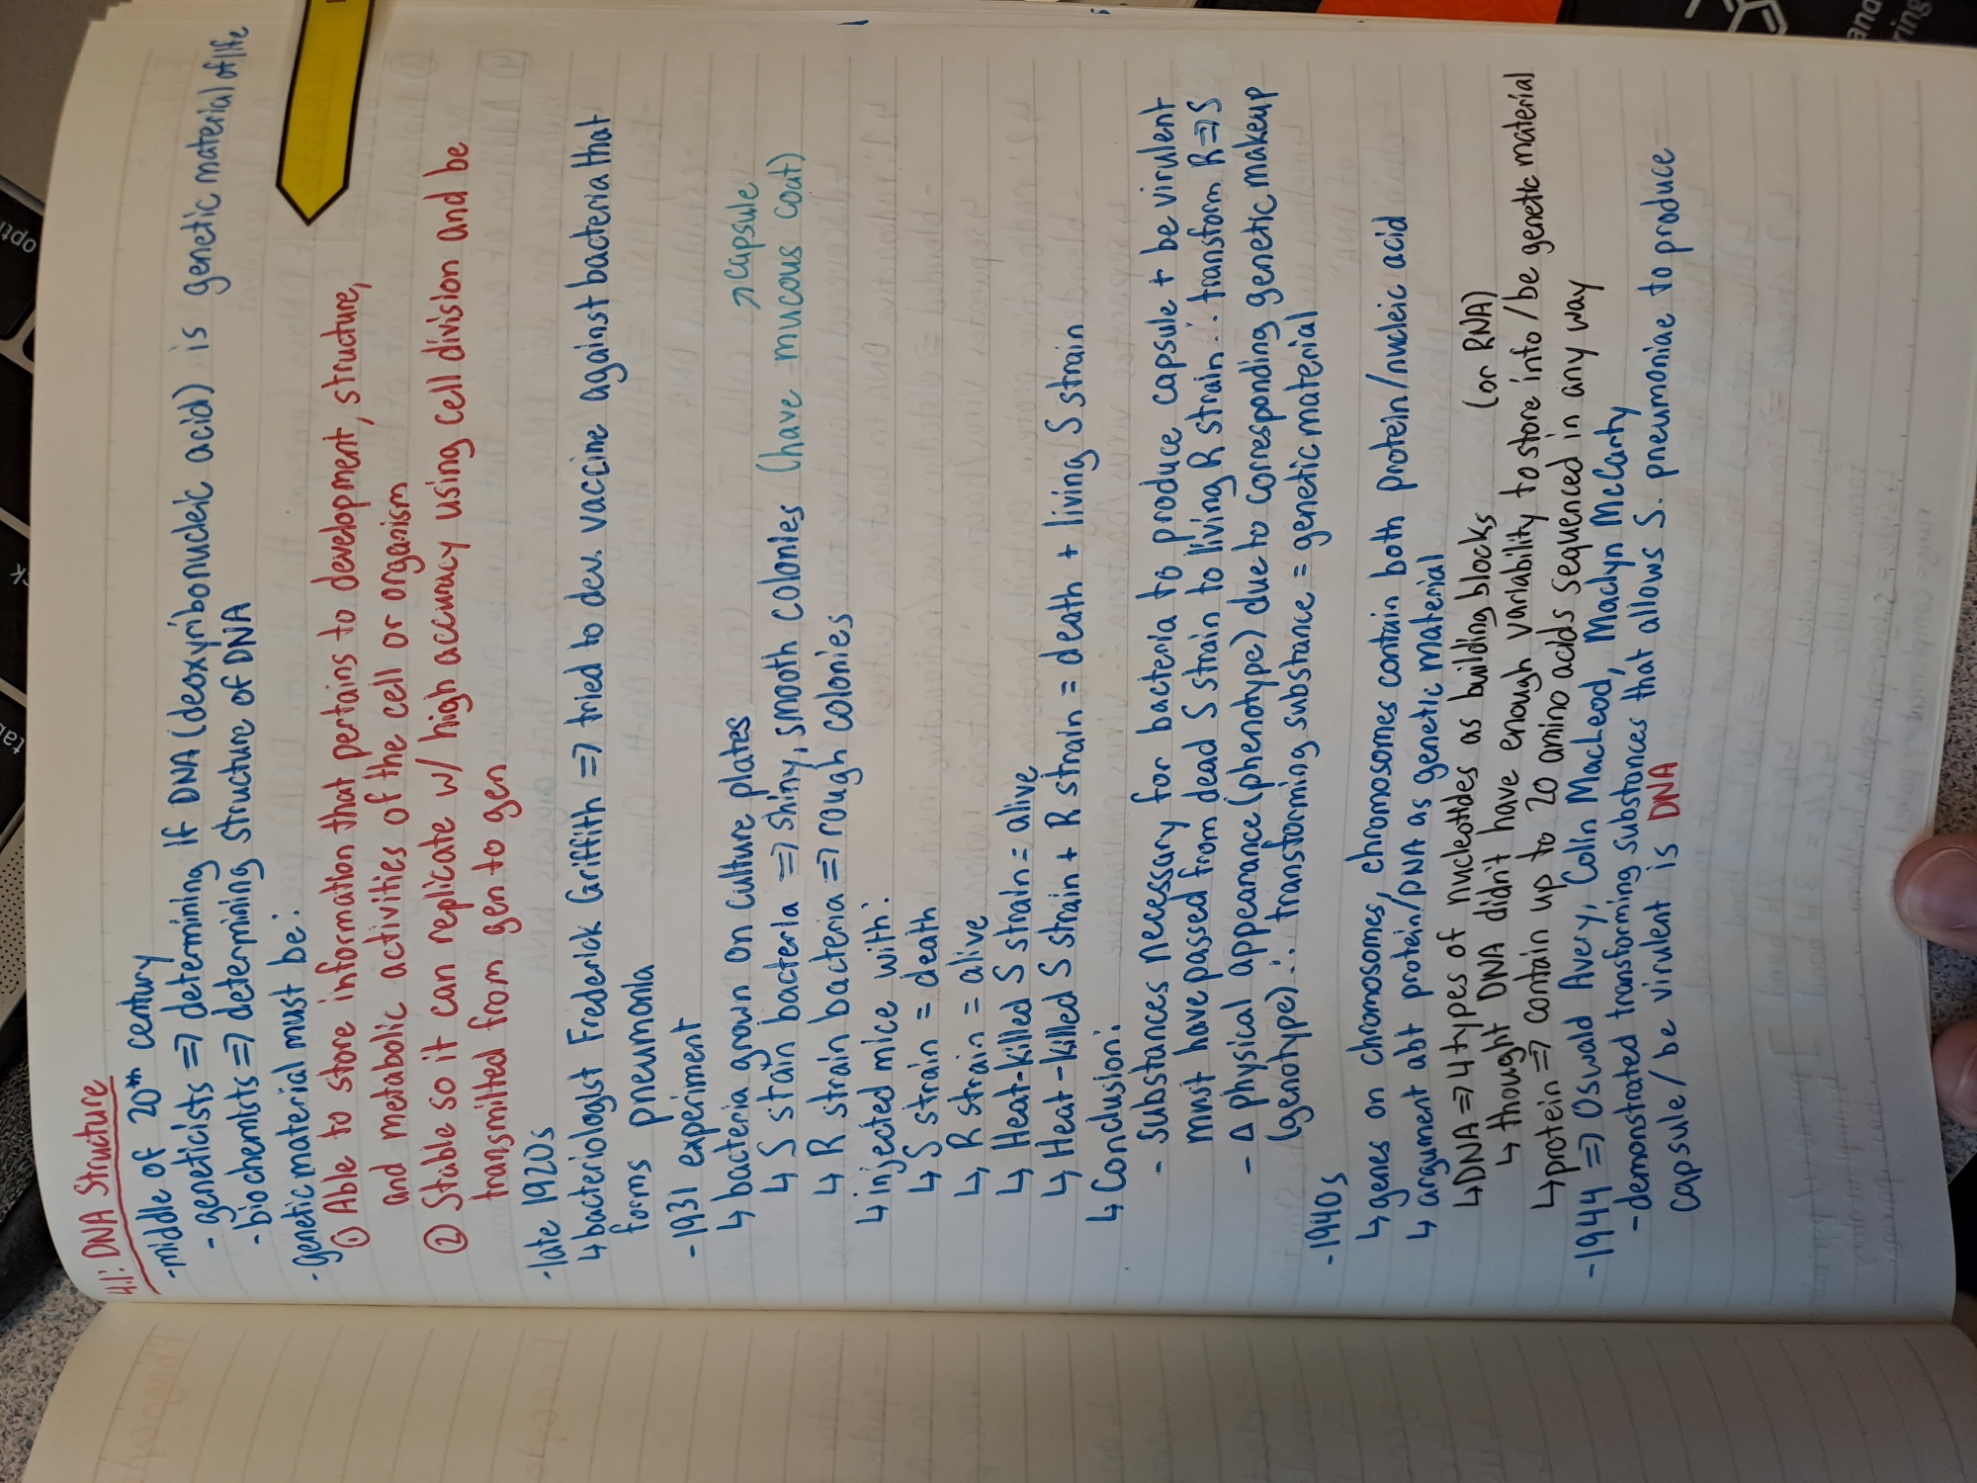 4.1: DNA Structure
-middle of 20th century
- geneticists => determining if DNA (deoxyribonucleic acid) is genetic material of life
- biochemists => determining structure of DNA
- genetic material must be:
① Able to store information that pertains to development, structure,
and metabolic activities of the cell or organism
② Stable so it can replicate w/ high accuracy using cell division and be
transmitted from gen to gen
-late 1920s
↳ bacteriologist Frederick Griffith => tried to dev. vaccine against bacteria that
forms pneumonia
- 1931 experiment
↳ bacteria grown on culture plates
↗ capsule
↳ S stain bacteria => shiny, smooth colonies (have mucous coat)
↳ R strain bacteria => rough colonies
↳ injected mice with:
↳ S strain = death
↳ R strain = alive
↳ Heat-killed S strain = alive
↳ Heat-killed S strain + R strain = death + living S strain
↳ Conclusion:
- substances necessary for bacteria to produce capsule + be virulent
must have passed from dead S strain to living R strain ∴ transform R => S
- Δ physical appearance (phenotype) due to corresponding genetic makeup
(genotype) ∴ transforming substance = genetic material
- 1940s
↳ genes on chromosomes, chromosomes contain both protein/nucleic acid
↳ argument abt protein/DNA as genetic material
↳ DNA => 4 types of nucleotides as building blocks (or RNA)
↳ thought DNA didn't have enough variability to store info / be genetic material
↳ protein => contain up to 20 amino acids sequenced in any way
- 1944 => Oswald Avery, Colin MacLeod, Maclyn McCarty
- demonstrated transforming substances that allows S. pneumoniae to produce
capsule / be virulent is DNA